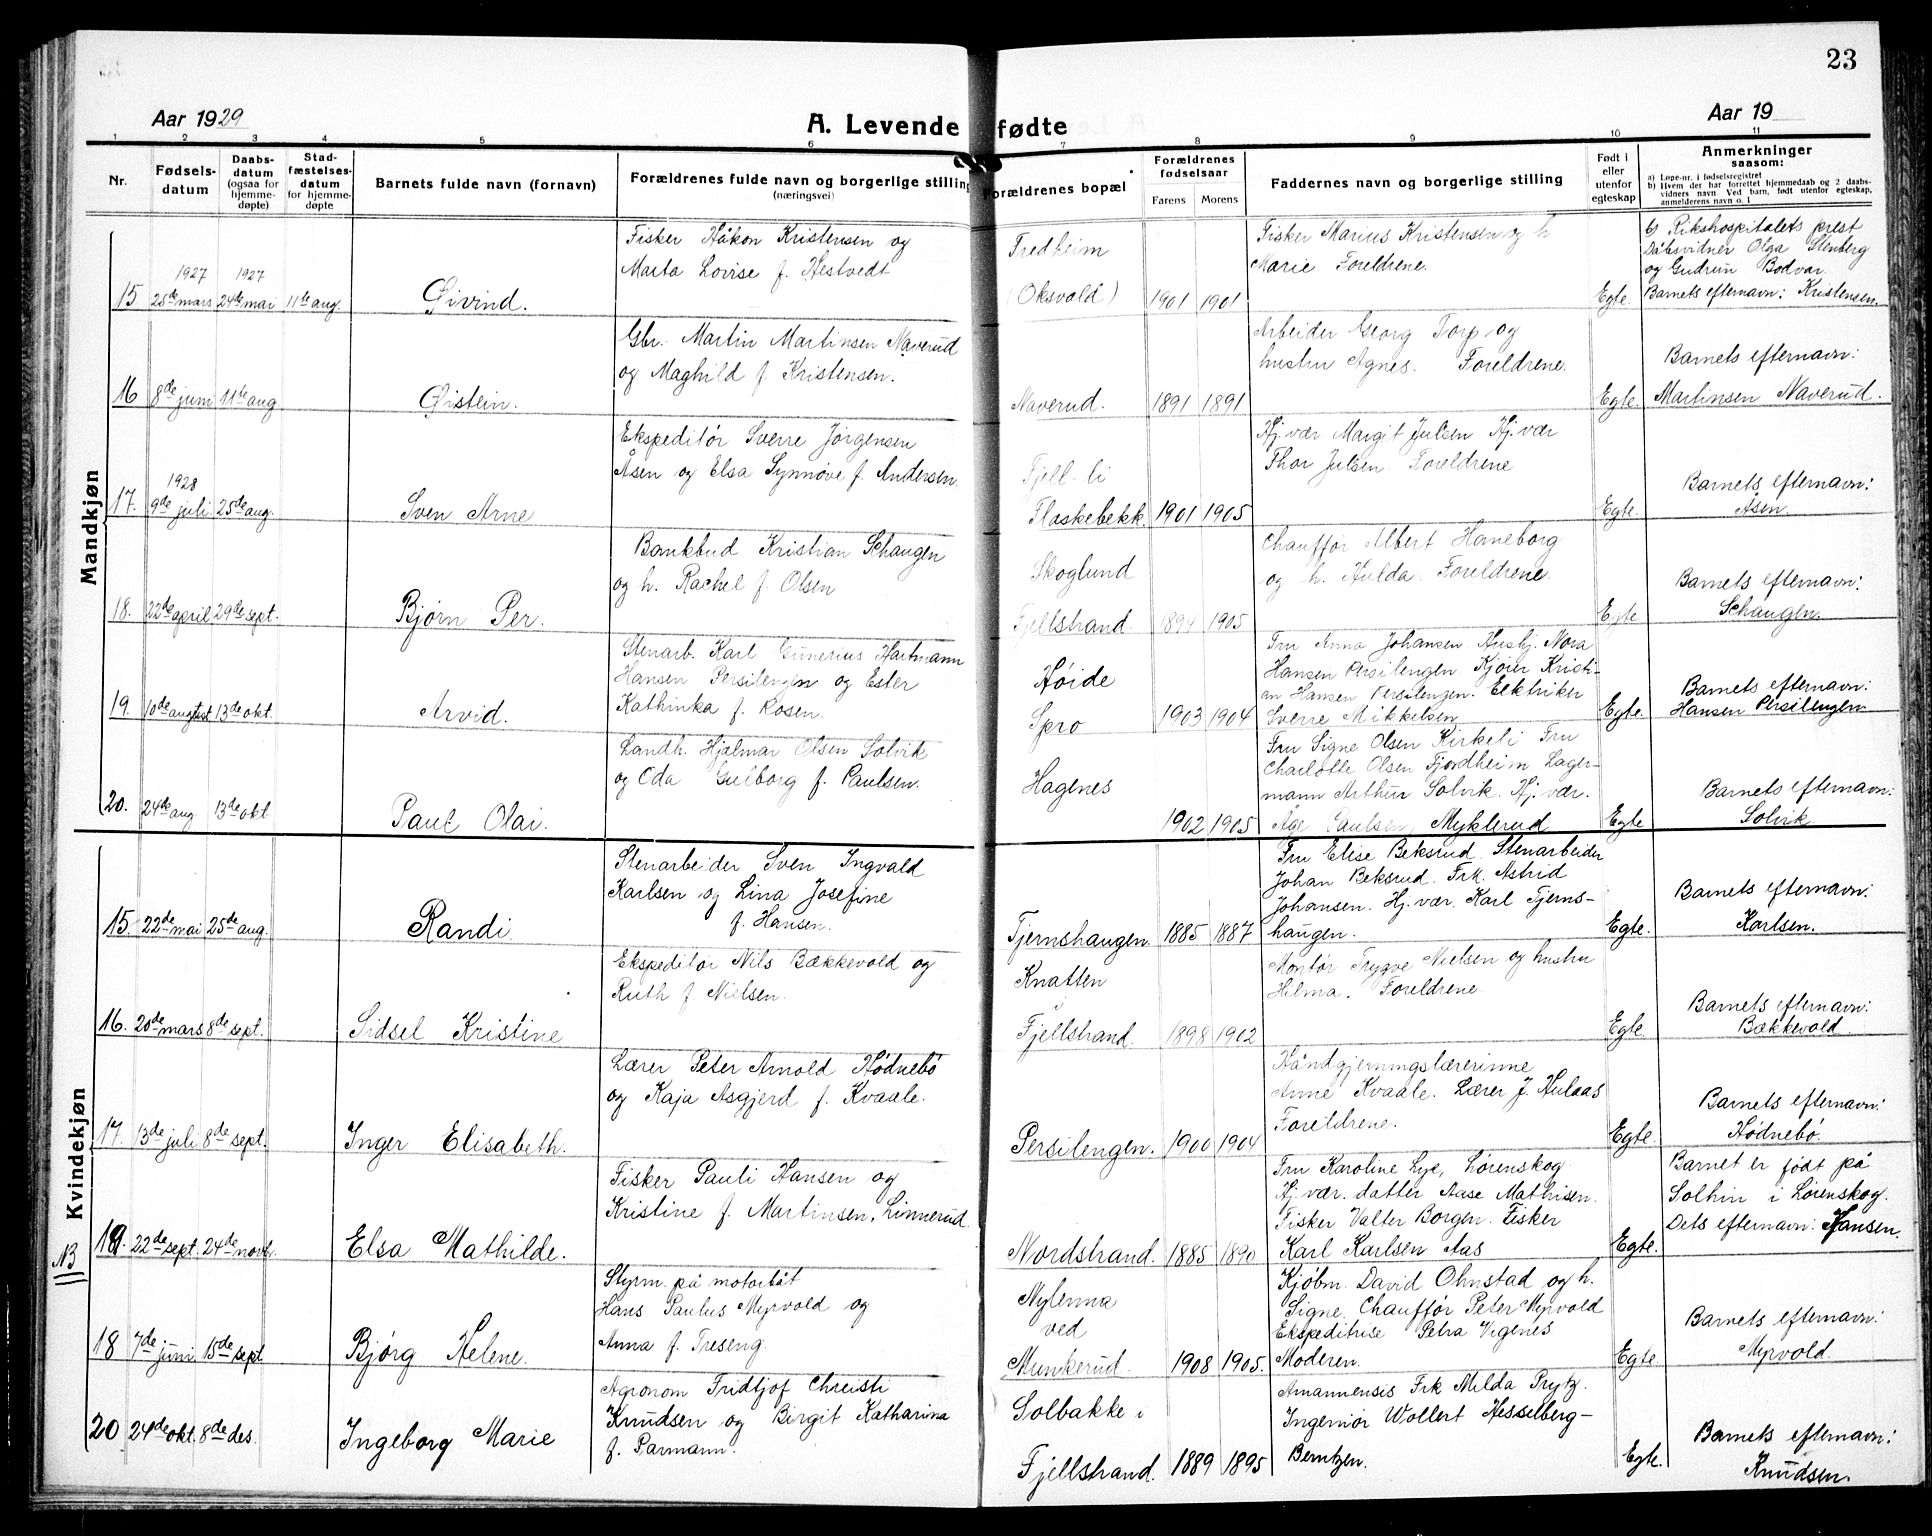 23
Aar 1929
A. Levende fødte
Aar 19
1 2 3 4 5 6 7 8 9 10 11
Nr.
Fødselsdatum
Daabsdatum (ogsaa for hjemmedøpte)
Stadfæstelsesdatum for hjemmedøpte
Barnets fulde navn (fornavn)
Forældrenes fulde navn og borgerlige stilling (næringsvei)
Forældrenes bopæl
Forældrenes fødselsaar
Farens Morens
Faddernes navn og borgerlige stilling
Født i eller utenfor egteskap
Anmerkninger saasom:
a) Løpe-nr. i fødselsregistret
b) Hvem der har forrettet hjemmedaab og 2 daabsvidners navn. Ved barn, født utenfor egteskap, anmelderens navn o. l.
Mandkjøn
15 1927 25de mars 1927 24de mai 11te aug. Øivind.
Fisker Håkon Kristensen og
Marta Lovise f. Hestvedt
Fredheim
(Oksvold) 1901 1901
Fisker Marius Kristensen og h
Marie Foreldrene.
Egte.
b) Rikshospitalets prest
Dåbsvidner Olga Stenberg
og Gudrun Bodvar.
Barnets efternavn: Kristensen.
16 8de juni 11te aug Øistein.
Gbr. Martin Martinsen Naverud
og Maghild f. Kristensen.
Naverud. 1891 1891
Arbeider Georg Torp og
hustru Agnes. Foreldrene.
Egte.
Barnets efternavn:
Martinsen Naverud.
17. 1928 9de juli. 25de aug. Sven Arne
Ekspeditør Sverre Jørgensen
Åsen og Elsa Synnøve f. Andersen.
Fjell-li
Flaskebekk 1901 1905
Hj. vær Margit Julsen Hj. vær
Thor Julsen. Foreldrene
Egte.
Barnets efternavn:
Åsen.
18. 22de april 29de sept. Bjørn Per.
Bankbud Kristian Schaugen
og h. Rachel f. Olsen
Skoglund
Fjellstrand. 1894 1905
Chauffør Albert Haneborg
og h. Hulda. Foreldrene.
Egte
Barnets efternavn:
Schaugen.
19. 10de august 13de okt. Arvid.
Stenarb. Karl Gunerius Hartmann
Hansen Persilengen og Ester
Kathinka f. Rosen.
Høide
Spro 1903 1904
Fru Anna Johansen Husbj. Nora
Hansen Persilengen Kjøier Kristi-
an Hansen Persilengen. Eektriker
Sverre Mikkelsen
Egte.
Barnets efternavn:
Hansen Persilengen
20. 24de aug 13de okt Paul Olai.
Landh. Hjalmar Olsen Solvik
og Oda Gulborg f. Paulsen.
Hagenes
1902 1905
Fru Signe Olsen Kirkeli Fru
Charlotte Olsen Fjordheim Lager-
mann Arthur Solvik. Hj. vær.
Åge Paulsen Myklerud
Egte
Barnets efternavn:
Solvik.
Kvindekjøn
15. 22de mai 25de aug. Randi.
Stenarbeider Sven Ingvald
Karlsen og Lina Josefine
f. Hansen.
Tjernshaugen. 1885 1887
Fru Elise Beksrud. Stenarbeider
Johan Beksrud. Frk. Astrid
Johansen. Hj. vær. Karl Tjerns-
haugen.
Egte.
Barnets efternavn:
Karlsen.
16. 20de mars 8de sept. Sidsel Kristine
Ekspeditør Nils Bækkevold og
Ruth f Nielsen.
Knatten
i
Fjellstrand. 1898 1902
Montør Trygve Nielsen og hustru
Hilma. Foreldrene.
Egte.
Barnets efternavn:
Bækkevold.
17. 13de juli 8de sept. Inger Elisabeth.
Lærer Peter Arnold Hødnebø
og Kaja Asgjerd f. Kvaale.
Persilengen. 1900 1904
Håndgjerningslærerinne
Anne Kvaale. Lærer J. Aulaas
Foreldrene.
Egte.
Barnets efternavn:
Hødnebø.
NB 19. 22de sept. 24de novbr. Elsa Mathilde.
Fisker Pauli Hansen og
Kristine f. Martinsen, Linnerud.
Nordstrand. 1885 1890
Fru Karoline Lye, Lørenskog.
Hj. vær. datter Aase Mathisen.
Fisker Valter Borgen. Fisker
Karl Karlsen Aas
Egte.
Barnet er født på
Solhin i Lørenskog.
Dets efternavn: Hansen.
18 7de juni 15de sept Bjørg Helene.
Styrm. på motorbåt
Hans Paulus Myrvold og
Anna f. Treseng.
Nylenna
ved
Munkerud. 1908 1905.
Kjøbm. David Ohnstad og h.
Signe. Chauffør Peter Myrvold
Ekspeditrise Petra Vigenes
Moderen.
Egte.
Barnets efternavn:
Myrvold.
20 24de okt. 8de des. Ingeborg Marie
Agronom Fridtjof Christi
Knudsen og Birgit Katharina
f. Parmann.
Solbakke i
Fjellstrand. 1889 1895
Amannensis Frk Milda Prytz.
Ingeniør Wollert Hesselberg-
Berntzen.
Egte.
Barnets efternavn:
Knudsen.